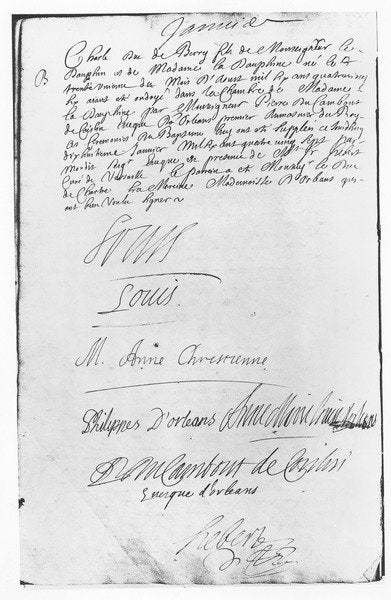 Janvier
Charle Duc de Berry fils de Monseigneur le
B
Dauphin et de Madame la Dauphine né le
trente unieme du Mois D'aoust mil six cent quatre vingt
six ayant esté ondoyé dans la chambre de Madame
la Dauphine par Monseigneur Pierre du Cambout
de Coislin Evesque D'orleans premier Aumosnier du Roy
les Ceremonies du Baptesme luy ont esté supplées ce
dix huitieme Janvier Mil six cent quatre vingt sept par
mondit Seigr Evesque en presence de Mr Hebert
Curé de Versaille le parrain a esté Monsr le Duc
de Chartre la Mareine Mademoiselle D'orleans qui
ont bien voulu signer
Louis
Louis.
M. Anne Chrestienne
Philippes D'orleans Anne Marie Louise d'orleans
P. Du Cambout de Coislin
Evesque d'orleans
Hebert